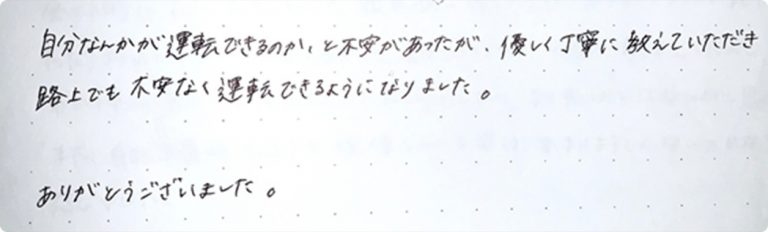 自分なんかが運転できるのか、と不安があったが、優しく丁寧に教えていただき
路上でも不安なく運転できるようになりました。
ありがとうございました。